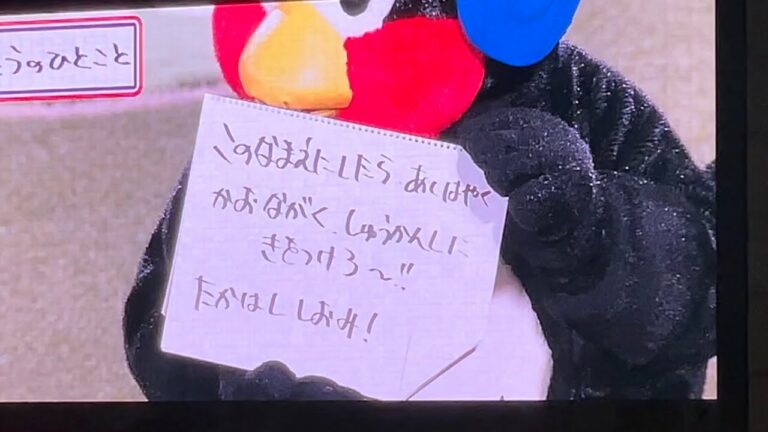 うのひとこと
このなまえにしたら あしはやく
かおながく、しゅうかんしに
きをつけろ〜!!
たかはし しおみ!